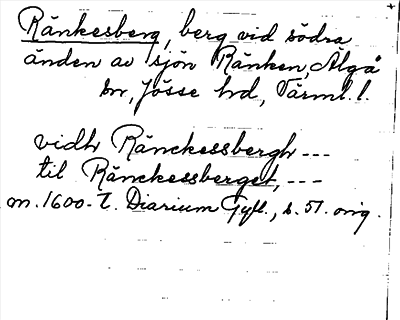 Ränkesberg, berg vid södra
änden av sjön Ränken, Älgå
sn, Jösse hd, Värml. l.
vidh Ränckessbergh ---
til Ränckessberget, ---
m. 1600-t. Diarium Gyll., s. 57. orig.